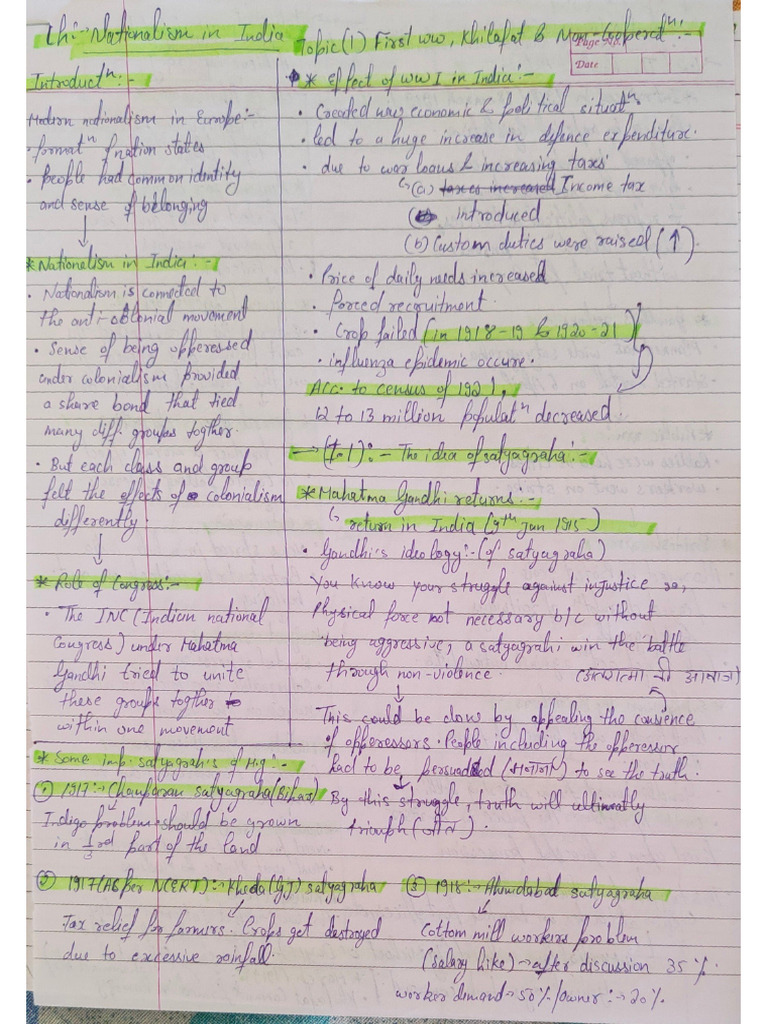 Ch:- Nationalism in India
Topic(1) First WW, Khilafat & Non-Cooperatⁿ:-
Page No.
Date
Introductⁿ:-
Modern nationalism in Europe:-
• formatⁿ of nation states
• People had common identity
and sense of belonging
↓
* Nationalism in India:-
• Nationalism is connected to
the anti-colonial movement
• Sense of being opperessed
under colonialism provided
a share bond that tied
many diff. groups togther.
• But each class and group
felt the effects of colonialism
differently.
↓
* Role of Congress:-
• The INC (Indian national
Congress) under Mahatma
Gandhi tried to unite
these groups togther
within one movement
* Effect of WW I in India:-
• Created new economic & political situatⁿ.
• led to a huge increase in defence expenditure.
• due to war loans & increasing taxs
↳ (a) taxes increased Income tax
introduced
(b) Custom duties were raised (↑)
• Price of daily needs increased
• forced recruitment.
• Crop failed (in 1918-19 & 1920-21)
• influenza epidemic occure.
Acc. to census of 1921,
12 to 13 million populatⁿ decreased.
→ (T.1):- The idea of satyagraha:-
* Mahatma Gandhi returns:-
↳ return in India (9th Jan 1915)
• Gandhi's ideology:- (of satyagraha)
You know your struggle against injustice so,
Physical force not necessary b/c without
being aggressive, a satyagrahi win the battle
through non-violence. (अन्तरात्मा की आवाज)
↓
This could be done by appealing the consience
of opperessors. People including the opperessor
had to be persuaded (मनाना) to see the truth.
By this struggle, truth will ultimeatly
triumph (जीत).
* Some imp. satyagrahis of M.G:-
① 1917:- Champaran satyagraha (Bihar)
Indigo problem should be grown
in 1/3rd part of the land
② 1917 (As per NCERT):- Kheda (GJ) satyagraha
Tax relief for farmers. Crops get destroyed
due to excessive rainfall.
③ 1918:- Ahmdabad satyagraha
Cottom mill workers problem
(salary hike) → after discussion 35%.
worker demand → 50% / owner: → 20%.